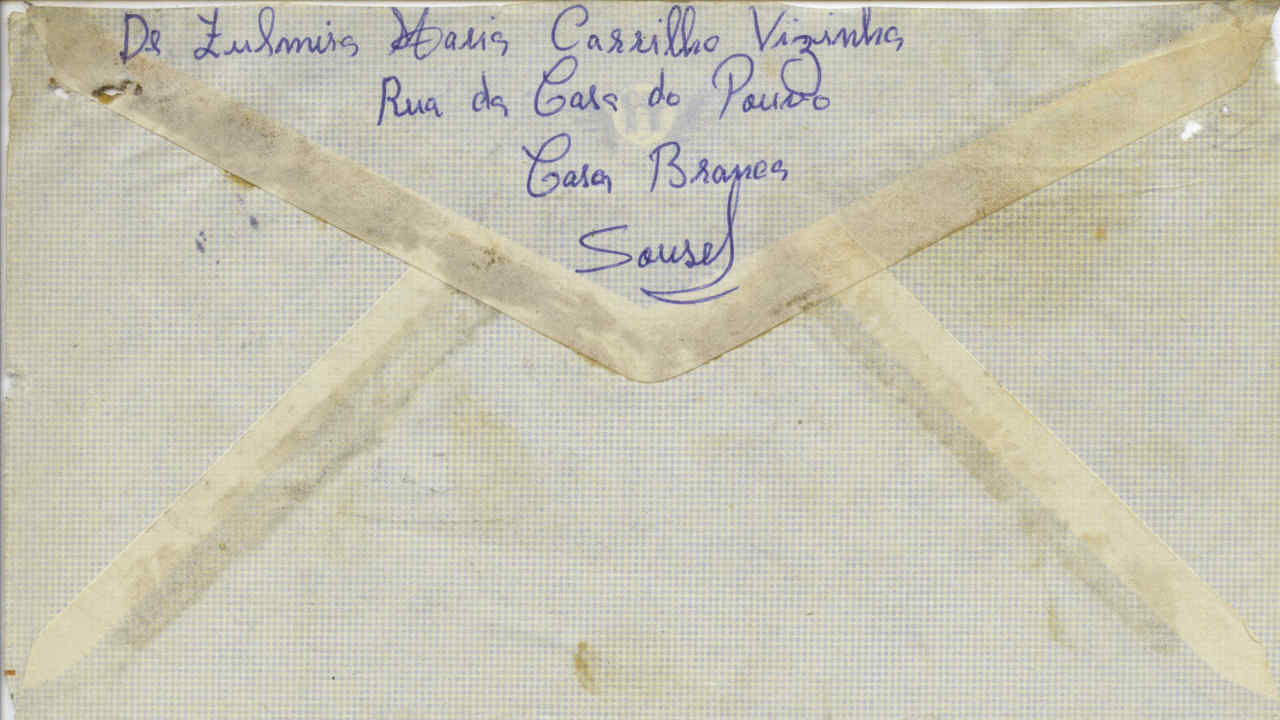 De Zulmira Maria Carrilho Vizinha
Rua da Casa do Pouvo
Casa Branca
Sousel